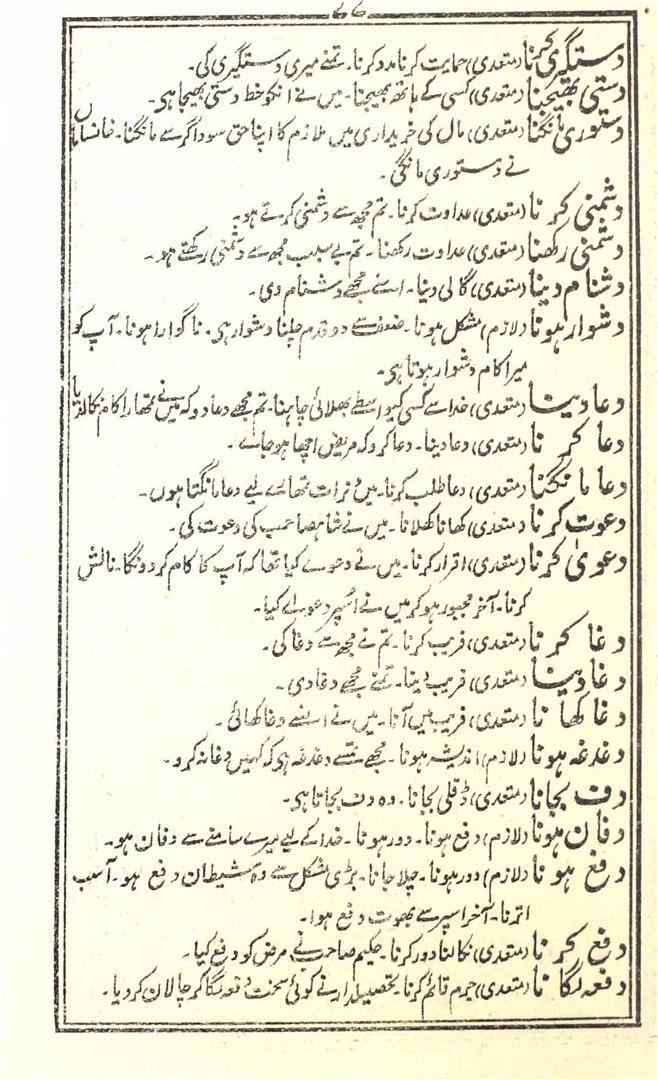 ۷۷
دستگیری کرنا (متعدی) حمایت کرنا مدد کرنا۔ تمنے میری دستگیری کی۔
دستی بھیجنا (متعدی) کسی کے ہاتھ بھیجنا۔ میں نے انکو خط دستی بھیجا ہی۔
دستوری مانگنا (متعدی) مال کی خریداری میں ملازم کا اپنا حق سوداگر سے مانگنا۔ خانساماں
نے دستوری مانگی۔
دشمنی کرنا (متعدی) عداوت کرنا۔ تم مجھ سے دشمنی کرتے ہو۔
دشمنی رکھنا (متعدی) عداوت رکھنا۔ تم بے سبب مجھ سے دشمنی رکھتے ہو۔
دشنام دینا (متعدی) گالی دینا۔ اسنے مجھے دشنام دی۔
دشوار ہونا (لازم) مشکل ہونا۔ ضعف سے دو قدم چلنا دشوار ہی۔ ناگوارا ہونا۔ آپ کو
میرا کام دشوار ہوتا ہی۔
دعا دینا (متعدی) خدا سے کسی کیواسطے بھلائی چاہنا۔ تم مجھے دعا دو کہ میں نے تمھارا کام نکالدیا
دعا کرنا (متعدی) دعا دینا۔ دعا کرو کہ مریض اچھا ہو جائے۔
دعا مانگنا (متعدی) دعا طلب کرنا۔ میں دنرات تمھارے لیے دعا مانگتا ہوں۔
دعوت کرنا (متعدی) کھانا کھلانا۔ میں نے شاہصاحب کی دعوت کی۔
دعویٰ کرنا (متعدی) اقرار کرنا۔ میں نے دعوے کیا تھا کہ آپ کا کام کر دونگا۔ نالش
کرنا۔ آخر مجبور ہو کر میں نے اُسپر دعوے کیا۔
دغا کرنا (متعدی) فریب کرنا۔ تم نے مجھ سے دغا کی۔
دغا دینا (متعدی) فریب دینا۔ تمنے مجھے دغا دی۔
دغا کھانا (متعدی) فریب میں آنا۔ میں نے اسنے دغا کھائی۔
دغدغہ ہونا (لازم) اندیشہ ہونا۔ مجھے تمسے دغدغہ ہی کہ کہیں دغا نہ کرو۔
دف بجانا (متعدی) ڈفلی بجانا۔ وہ دف بجاتا ہی۔
دفان ہونا (لازم) دفع ہونا۔ دور ہونا۔ خدا کے لیے میرے سامنے سے دفان ہو۔
دفع ہونا (لازم) دور ہونا۔ چلا جانا۔ بڑی مشکل سے وہ شیطان دفع ہو۔ آسیب
اترنا۔ آخر اسپر سے بھوت دفع ہوا۔
دفع کرنا (متعدی) نکالنا دور کرنا۔ حکیم صاحب نے مرض کو دفع کیا۔
دفعہ لگانا (متعدی) جرم قائم کرنا۔ تحصیلدار نے کوئی سخت دفعہ لگا کر چالان کر دیا۔